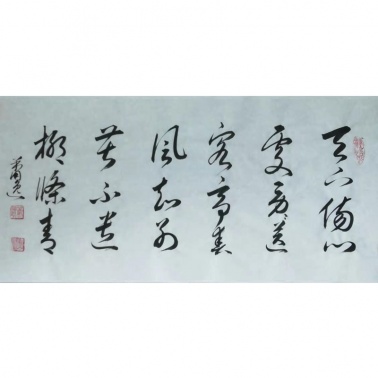 天下傷心
處勞々送
客亭春
風知別
苦不遣
柳條青